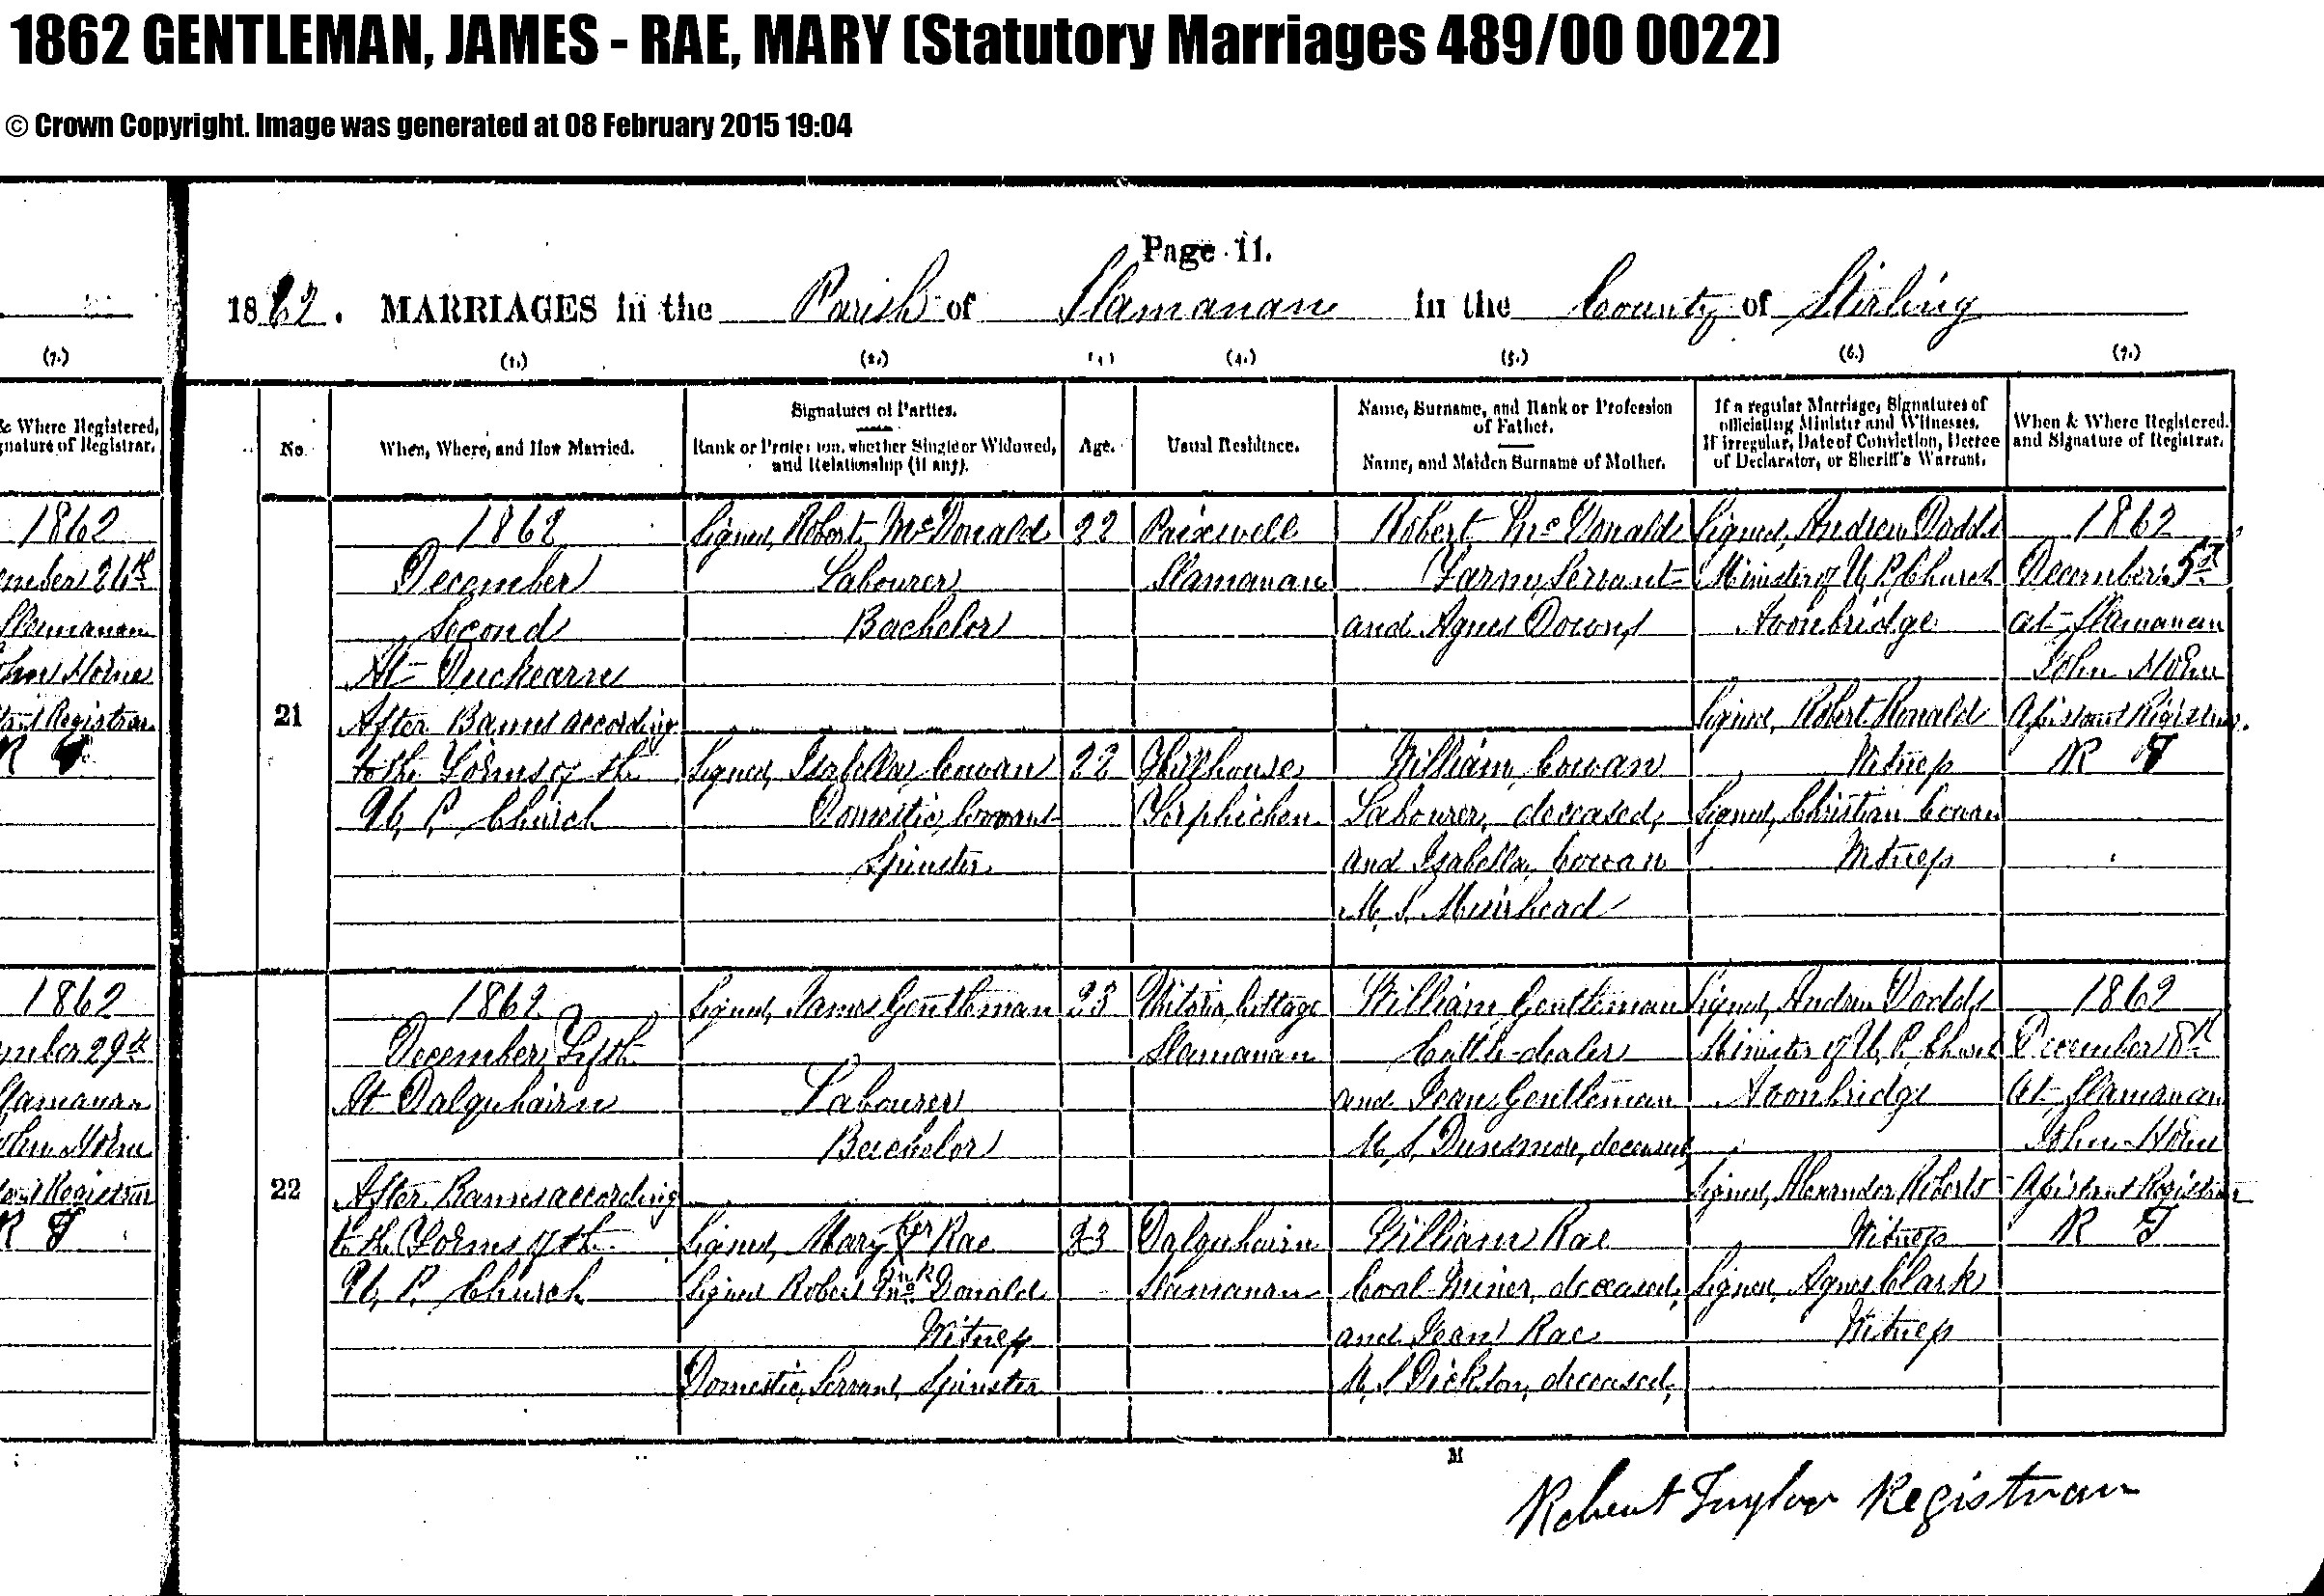 1862 GENTLEMAN, JAMES - RAE, MARY (Statutory Marriages 489/00 0022)
© Crown Copyright. Image was generated at 08 February 2015 19:04
Page 11.
1862. MARRIAGES in the Parish of Slamanan in the County of Stirling
(7.) (1.) (2.) (4.) (5.) (6.) (7.)
& Where Registered,
gnature of Registrar.
No.
When, Where, and How Married.
Signatures of Parties.
Rank or Profession, whether Single or Widowed,
and Relationship (if any).
Age.
Usual Residence.
Name, Surname, and Rank or Profession
of Father.
Name, and Maiden Surname of Mother.
If a regular Marriage, Signatures of
officiating Minister and Witnesses.
If irregular, Date of Conviction, Decree
of Declarator, or Sheriff's Warrant.
When & Where Registered,
and Signature of Registrar.
1862
mber 26th
Slamanan
John Horne
tant Registrar
R T
21
1862
December
Second
At
After Banns according
to the Forms of the
U. P. Church
Signed, Robert McDonald
Labourer
Bachelor
22
Slamanan
Robert McDonald
Farm Servant
and Agnes Downs
Signed, Andrew Dodds
Minister of U. P. Church
Avonbridge
Signed, Robert Ronald
Witness
Signed, Christian Cowan
Witness
1862
December 5th
at Slamanan
John Horne
Assistant Registrar.
R T
Signed, Isabella Cowan
Domestic Servant
Spinster
22
Hillhouse
Torphichen
William Cowan
Labourer, deceased,
and Isabella Cowan
M. S. Muirhead
1862
mber 29th
Slamanan
John Horne
tant Registrar
R T
22
1862
December Fifth
At Dalquhairn
After Banns according
to the Forms of the
U. P. Church
Signed, James Gentleman
Labourer
Bachelor
23
Cottage
Slamanan
William Gentleman
Cattle-dealer
and Jean Gentleman
M. S. Dunsmore, deceased,
Signed, Andrew Dodds
Minister of U. P. Church
Avonbridge
Signed, Alexander Roberts
Witness
Signed, Agnes Clark
Witness
1862
December 8th
at Slamanan
John Horne
Assistant Registrar
R T
Signed, Mary her X Rae
mark
Signed Robert McDonald
Witness
Domestic Servant, Spinster
23
Dalquhairn
Slamanan
William Rae
Coal-Miner, deceased,
and Jean Rae
M. S. Dickson, deceased,
M
Robert Taylor Registrar